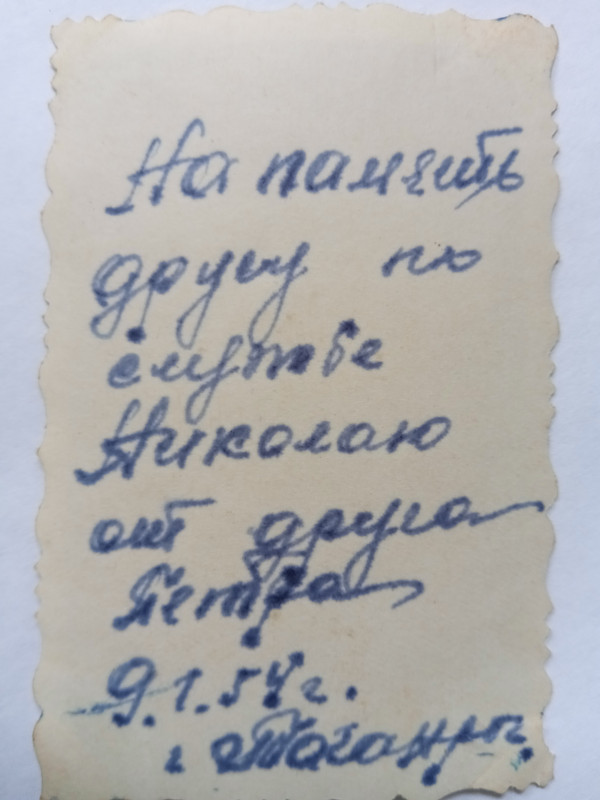 На память
другу по
службе
Николаю
от друга
Петра
9.1.54 г.
г. Таганрог